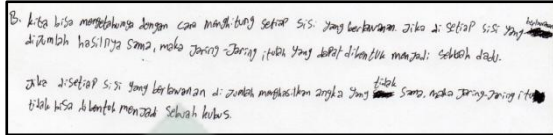 B. kita bisa mengetahuinya dengan cara menghitung setiap sisi yang berlawanan. Jika di setiap sisi yang berlawanan
dijumlah hasilnya sama, maka jaring-jaring itulah yang dapat dibentuk menjadi sebuah dadu.
Jika disetiap sisi yang berlawanan di jumlah menghasilkan angka yang tidak sama, maka jaring-jaring itu
tidak bisa dibentuk menjadi sebuah kubus.